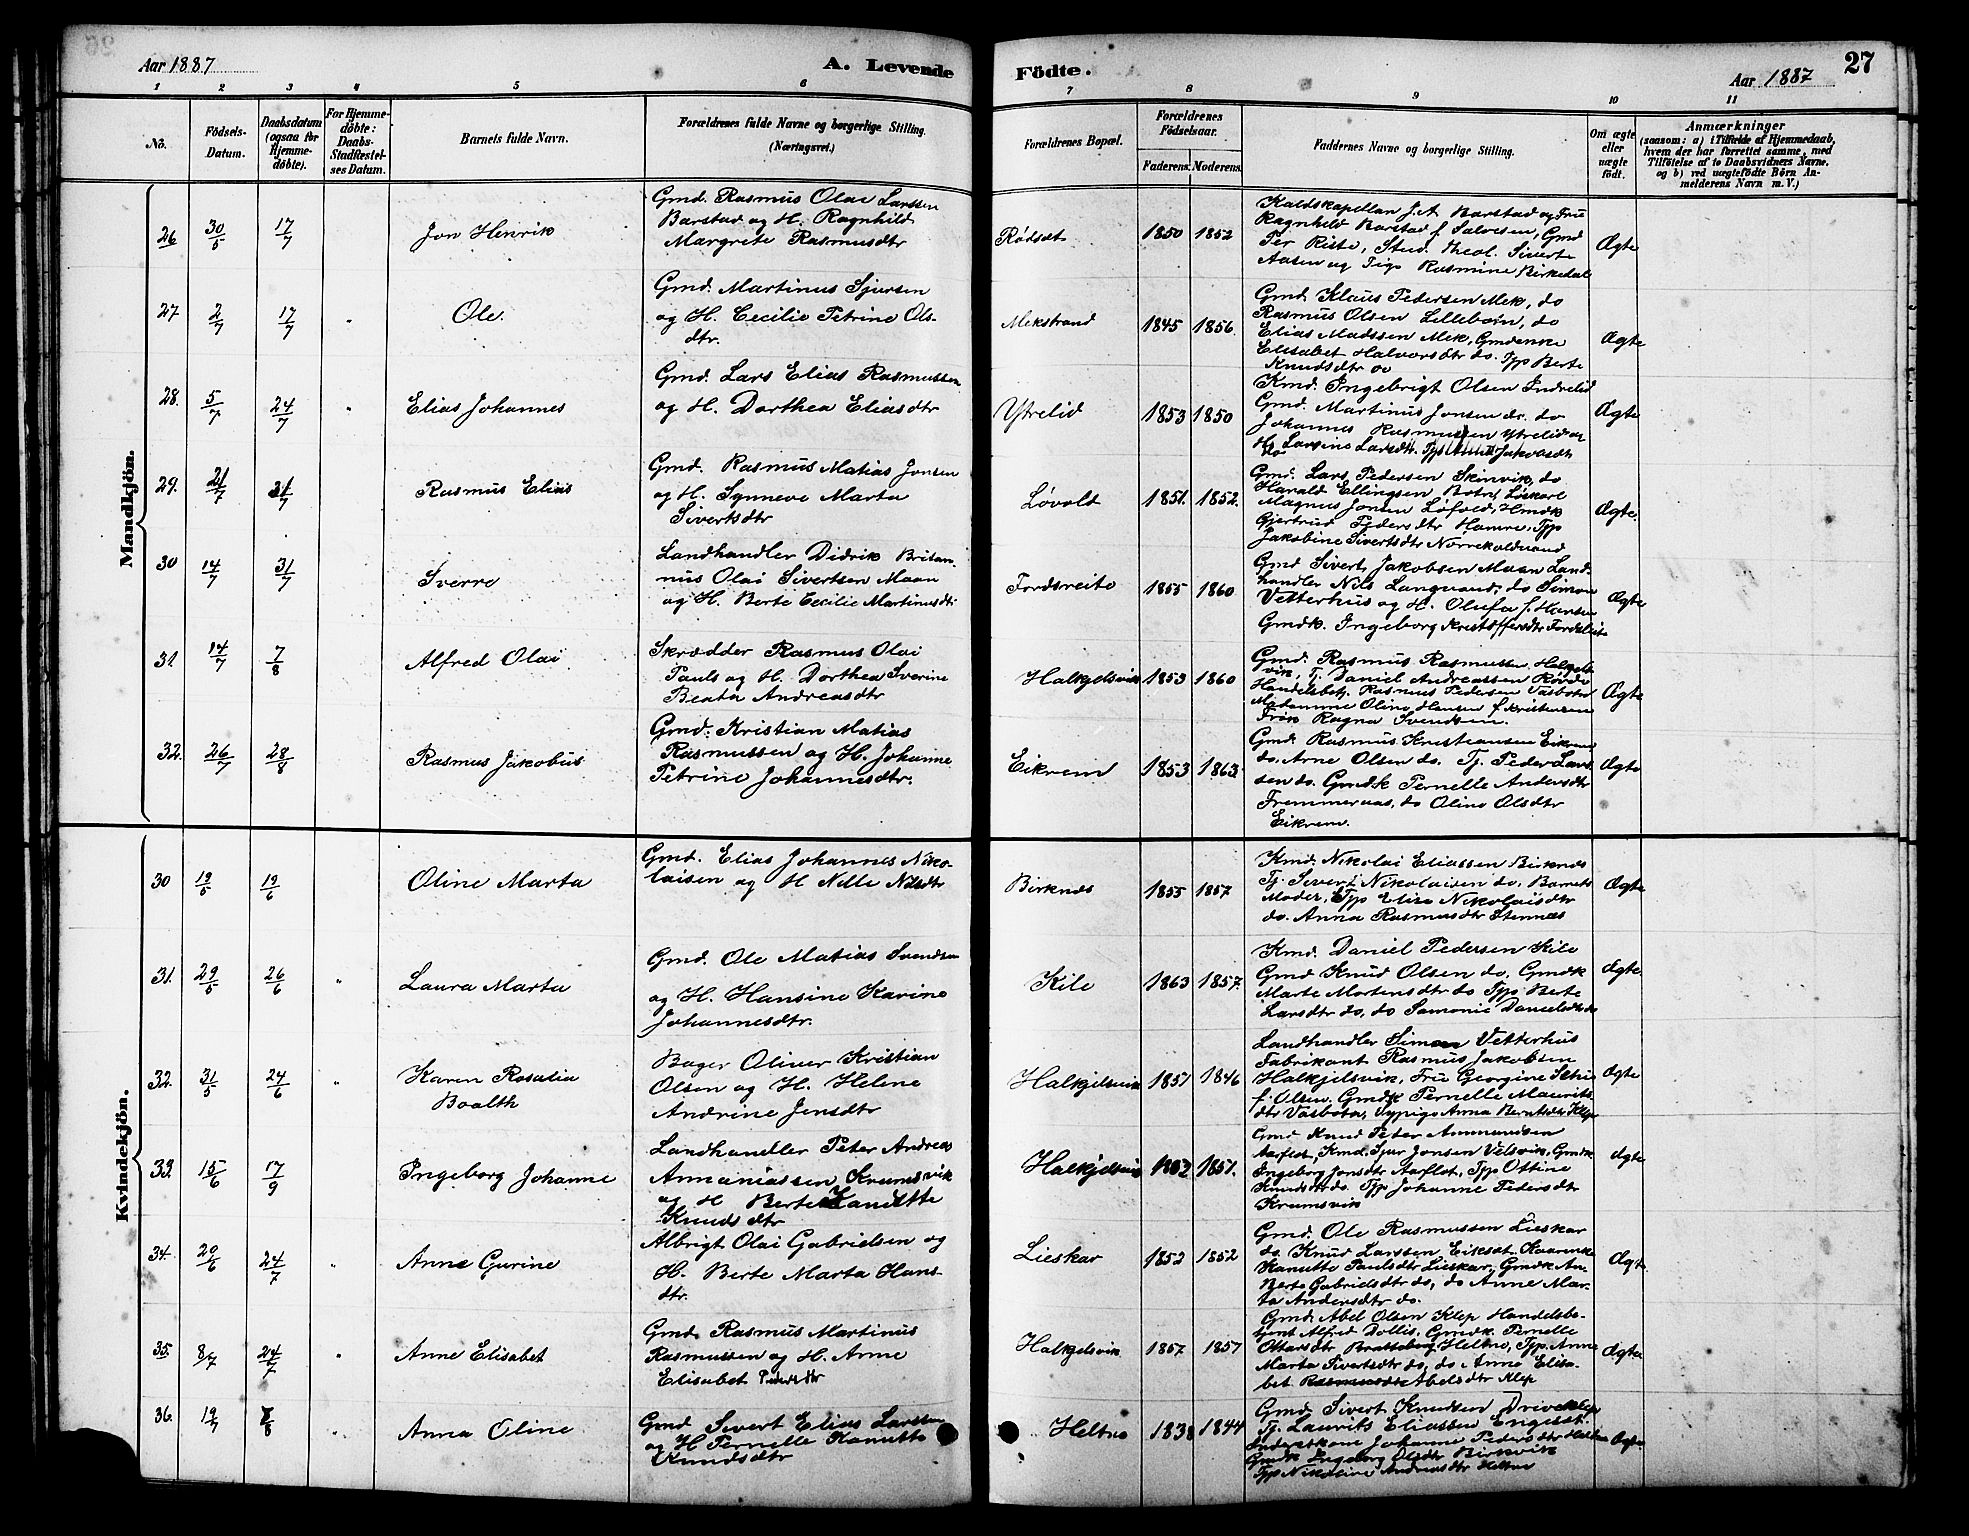 Aar 1887
A. Levende
Födte.
Aar 1887
27
1 2 3 4 5 6 7 8 9 10 11
No.
Födsels-
Datum.
Daabsdatum
(ogsaa for
Hjemme-
döbte).
For Hjemme-
döbte:
Daabs-
Stadfæstel-
ses Datum.
Barnets fulde Navn.
Forældrenes fulde Navne og borgerlige Stilling.
(Næringsvei.)
Forældrenes Bopæl.
Forældrenes
Födselsaar.
Faderens.
Moderens.
Faddernes Navne og borgerlige Stilling.
Om ægte
eller
uægte
födt.
Anmærkninger
(saasom: a) i Tilfælde af Hjemmedaab,
hvem der har forrettet samme, med
Tilföielse af to Daabsvidners Navne.
og b) ved uægtefödte Börn An-
melderens Navn m. V.)
Mandkjön.
26 30/5 17/7 Jon Henrik
Gmd. Rasmus Olai Larssen
Barstad og H. Ragnhild
Margrete Rasmusdtr
Rødsæt 1850 1852
Kaldskapellan J. A. Barstad og Fru
Ragnhild Barstad f. Salvesen, Gmd
Per Riste, Stud. theol. Sivert
Aasen og Pige Rasmine Birkedal
Ægte
27 2/7 17/7 " Ole.
Gmd. Martinus Sjursen
og H. Cecilie Petrine Ols-
dtr.
Mekstrand 1845 1856
Gmd. Klaus Pedersen Mek, do
Rasmus Olsen Lillebøen, do
Elias Madssen Mek, Gmdenke
Elisabet Halvorsdtr do. Pp Berte
Knudsdtr do
Ægte
28. 5/7 24/7 " Elias Johannes
Gmd. Lars Elias Rasmussen
og H. Dorthea Eliasdtr
Ytrelid 1853 1850
Kmd. Ingebrigt Olsen Indrelid
Gmd. Martinus Jonsen do. do
Johannes Rasmussen Ytrelid og
H. Larsine Larsdtr. Pp Jakobsdtr
do
Ægte
29. 21/7 31/7 Rasmus Elias
Gmd. Rasmus Matias Jonsen
og H. Synneve Marta
Sivertsdtr
Løvold 1851. 1852.
Gmd. Lars Pedersen Skinvik, do
Harald Ellingsen Botn, Løskarl
Magnus Jonsen Løfold, Kmdk
Gjertrud Pedersdtr Hamre, Pp
Jakobine Sivertsdtr
Ægte.
30 14/7 31/7 Sverre
Landhandler Didrik Britan-
nus Olai Sivertsen Maan
og H. Berte Cecilie Martinusdtr
Fordsreite 1855 1860
Gmd Sivert Jakobsen Maan Land-
handler Nils Langvand, do Simon
Vetterhus og H. Olufa f. Hansen
Gmdk. Ingeborg Kristoffersdtr
Ægte
31. 14/7 7/8 Alfred Olai
Skrædder Rasmus Olai
Pauls og H. Dorthea Sverine
Beata Andreasdtr
Halkjelsvik 1853 1860
Gmd. Rasmus Rasmussen Halkjels-
vik, Tj. Daniel Andreassen
Handelsbetj. Rasmus Pedersen Vasbotn
Madamme Oline Hansen f. Kristensen
Frøk Ragna Svendsen.
Ægte
32. 26/7 28/8 Rasmus Jakobus
Gmd. Kristian Matias
Rasmussen og H. Johanne
Petrine Johannesdtr.
Eikrem 1853 1863
Gmd. Rasmus Kristiansen Eikrem
do. Arne Olsen do. Tj. Peder Lars-
sen do. Gmdk Pernelle Andersdtr
Fremmeraas, do Oline Olsdtr
Eikrem.
Ægte
Kvindekjön.
30 19/5 19/6 Oline Marta
Gmd. Elias Johannes Niko-
laisen og H Nille Nilsdtr
Birknes 1855 1857
Kmd. Nikolai Eliassen Birknes
Tj. Sivert Nikolaisen do. Barnets
Moder, Pp Elise Nikolaisdtr
do. Anna Rasmusdtr Stennæs
Ægte
31. 29/5 26/6 " Laura Marta
Gmd. Ole Matias Svendsen
og H. Hansine Karine
Johannesdtr.
Kile 1863 1857.
Kmd. Daniel Pedersen Kile
Gmd Knud Olsen do, Gmdk
Marte Mortensdtr do Pp. Berte
Larsdtr do, do Samonie Danielsdtr do
Ægte
32. 31/5 24/6 " Karen Rosalia
Boalth
Bager Oliver Kristian
Olsen og H. Helene
Andrine Jensdtr
Halkjelsvik 1851 1846
Landhandler Simon Vetterhus
Fabrikant Rasmus Jakobsen
Halkjelsvik, Fru Georgine
f. Olsen, Gmdk Pernelle Maurits-
dtr Vasbotn, Sypige Anna Berntsdtr Klep
Ægte
33. 15/6 17/9 Ingeborg Johanne
Landhandler Peter Andreas
Ammaniassen Krumsvik
og H Berte Kanutte
Knudsdtr
Halkjelsvik 1851.
Gmd Knud Peter Ammundsen
Aarflot, Kmd. Sjur Jonsen Velsvik, Gmdk
Ingeborg Jonsdtr Aarflot, Pp Ottine
Knudsdtr do. Pp Johanne Pedersdtr
Krumsvik
Ægte
34. 20/6 24/7 " Anne Gurine
Albrigt Olai Gabrielsen og
H. Berte Marta Hans-
dtr.
Lieskar 1852 1852
Gmd. Ole Rasmussen Lieskar
do. Knud Larssen Eiksæt
Kanutte Paulsdtr Lieskar, Gmdk An-
Berte Gabrielsdtr do, do Anne Mar-
ta Andersdtr do.
Ægte.
35. 8/7 24/7 " Anne Elisabet
Gmd. Rasmus Martinus
Rasmussen og H. Anne
Elisabet Pedersdtr
Halkjelsvik 1857 1857
Gmd. Abel Olsen Klep Handelsbe-
tjent Alfred Dollis, Gmdk. Pernelle
Ottarsdtr Heltne, Pp. Anne
Marta Sivertsdtr do, do Anne Elisa-
bet Abelsdtr Klep
Ægte
36. 19/7 7/8 Anna Oline
Gmd Sivert Elias Larssen
og H Pernelle Kanutte
Knudsdtr
Heltne 1838 1844
Gmd. Sivert Knudsen Driveklep
Tj. Laurits Eliassen Engeset.
Inderstkone Johanne Pedersdtr
Gmdk Ingeborg Olsdtr Birkvik
Pp Nikoline Andreasdtr Heltne
Ægte